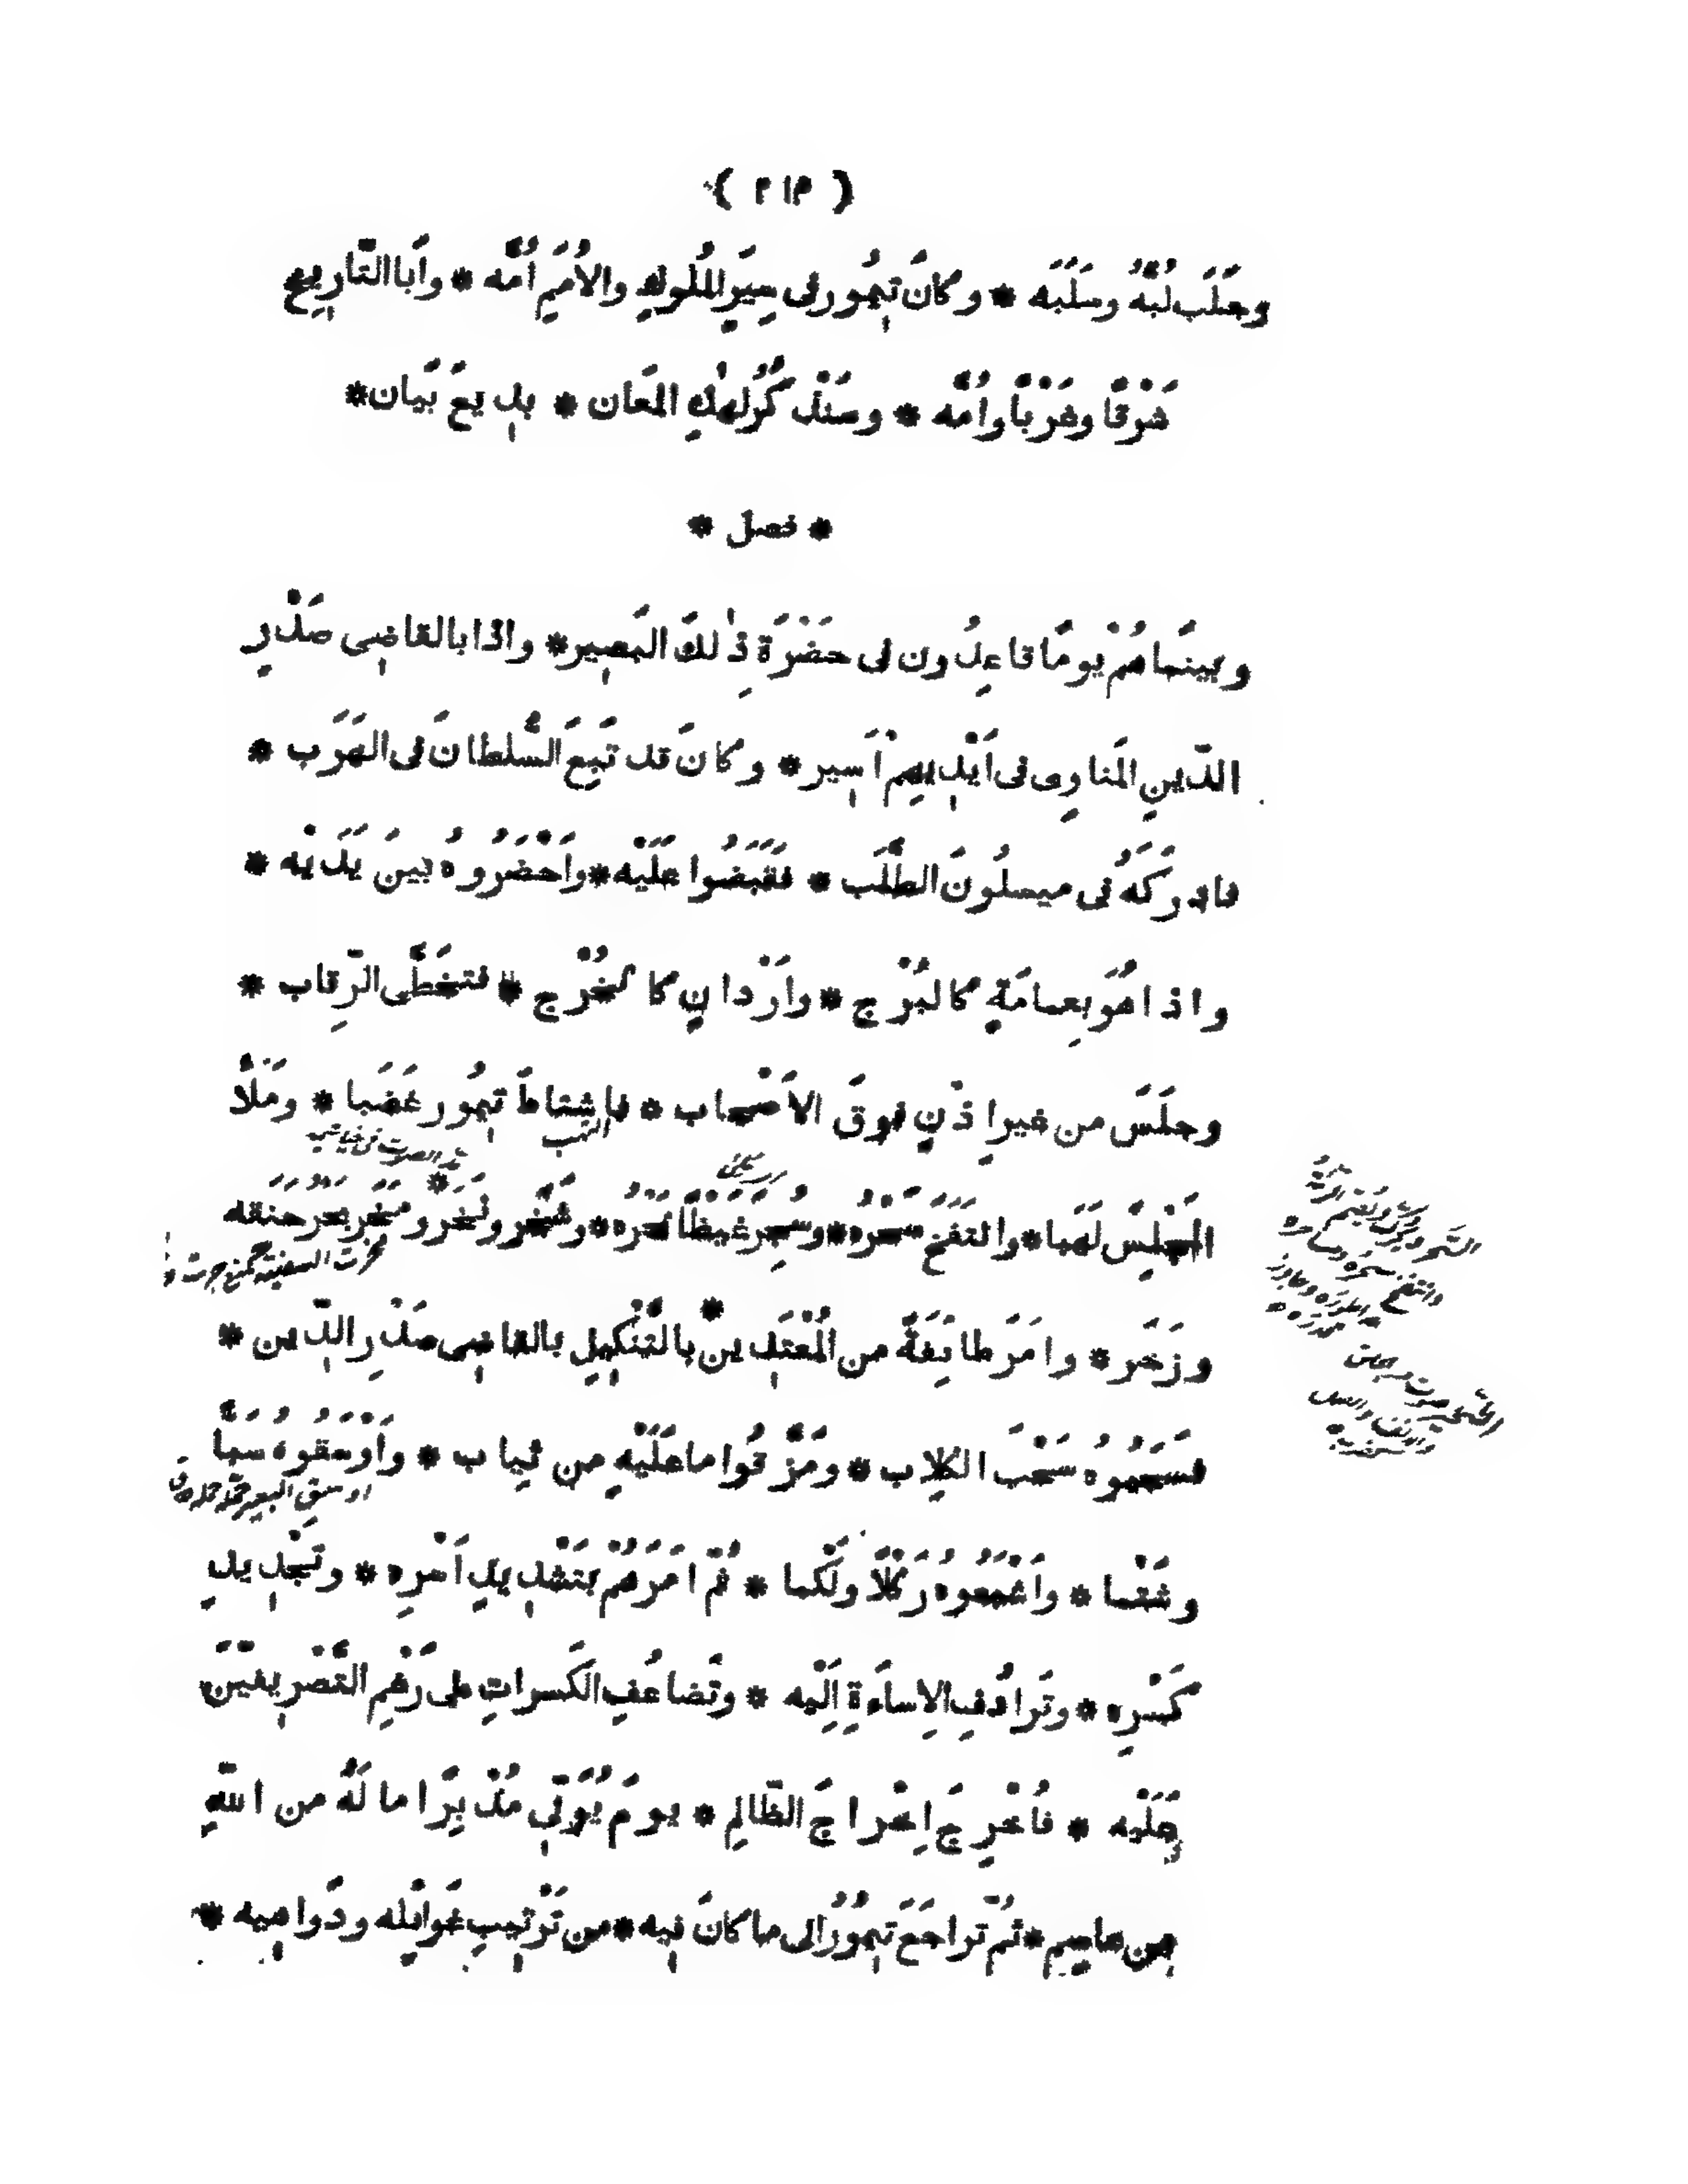 ( ٢١٣ )
وخَلَبَ لُبَّهُ وسَلَبَه * وكانَ تِيمُور فى سِيَرِ المُلُوكِ والاُمَمِ اُمَّه * واَبا التَّارِيخِ
شَرْقًا وغَرْبًا واُمَّه * وسَنَذْكُرُ لهٰذِهِ المَعان * بِدِيعَ بَيان *
* فصل *
وبينَماهُمْ يومًا قاعِدُون فى حَضْرَةِ ذٰلكَ البَصِير * واذا بالقاضِى صَدْرِ
الدّينِ المَناوِى فى اَيْدِيهِمْ اَسِير * وكانَ قد تَبِعَ السُّلطانَ فى الهَرَب *
فادركَهُ فى ميسلُونَ الطَّلَب * فقَبَضُوا عَلَيْه * واَحْضَرُوهُ بينَ يَدَيْه *
واذا هُوَ بِعمامَةٍ كالبُرْج * واَرْدانٍ كالخُرْج * فتخَطَّى الرِّقاب *
وجلَسَ من غيرِ اذْنٍ فوقَ الاَصْحاب * فاشتاطَ تِيمُور غَضَبا * ومَلَأَ
التهب
المَجْلِسَ لَهَبا * وانتَفَخَ سَحْرُه * وسُجِرَ غَيظًا نَحْرُه * وشَخَّر ونَخَر ومَخَر بَحْرُ حَنَقه
وزَخَر * وامَرَ طائِفَةً من المُعْتَدِين بالتَّنْكِيلِ بالقاضِى صَدْرِ الدّين *
فسَحَبُوهُ سَحْبَ الكِلاب * ومَزَّقُوا ماعَلَيْهِ من ثِياب * واَوْسَقُوهُ سَبًّا
وشَتْما * واَشْبَعُوهُ رَكْلًا ولَكْما * ثُمَّ امَرَهُمْ بتَشْدِيدِ اَسْرِه * وتَجْدِيدِ
كَسْرِه * وتَرادُفِ الاِساءَةِ اِلَيْه * وتَضاعُفِ الكَسراتِ على رَغْمِ التَّصْرِيفِيِّينَ
عَلَيْه * فاُخْرِجَ اِخْراجَ الظّالِم * يومَ يُوَلِّى مُدْبِرًا مالَهُ من اللّٰهِ
مِن عاصِم * ثُمَّ تراجَعَ تِيمُورُ الى ما كانَ فِيه * من تَرْتِيبِ غَوائِلِه ودَواهِيه *